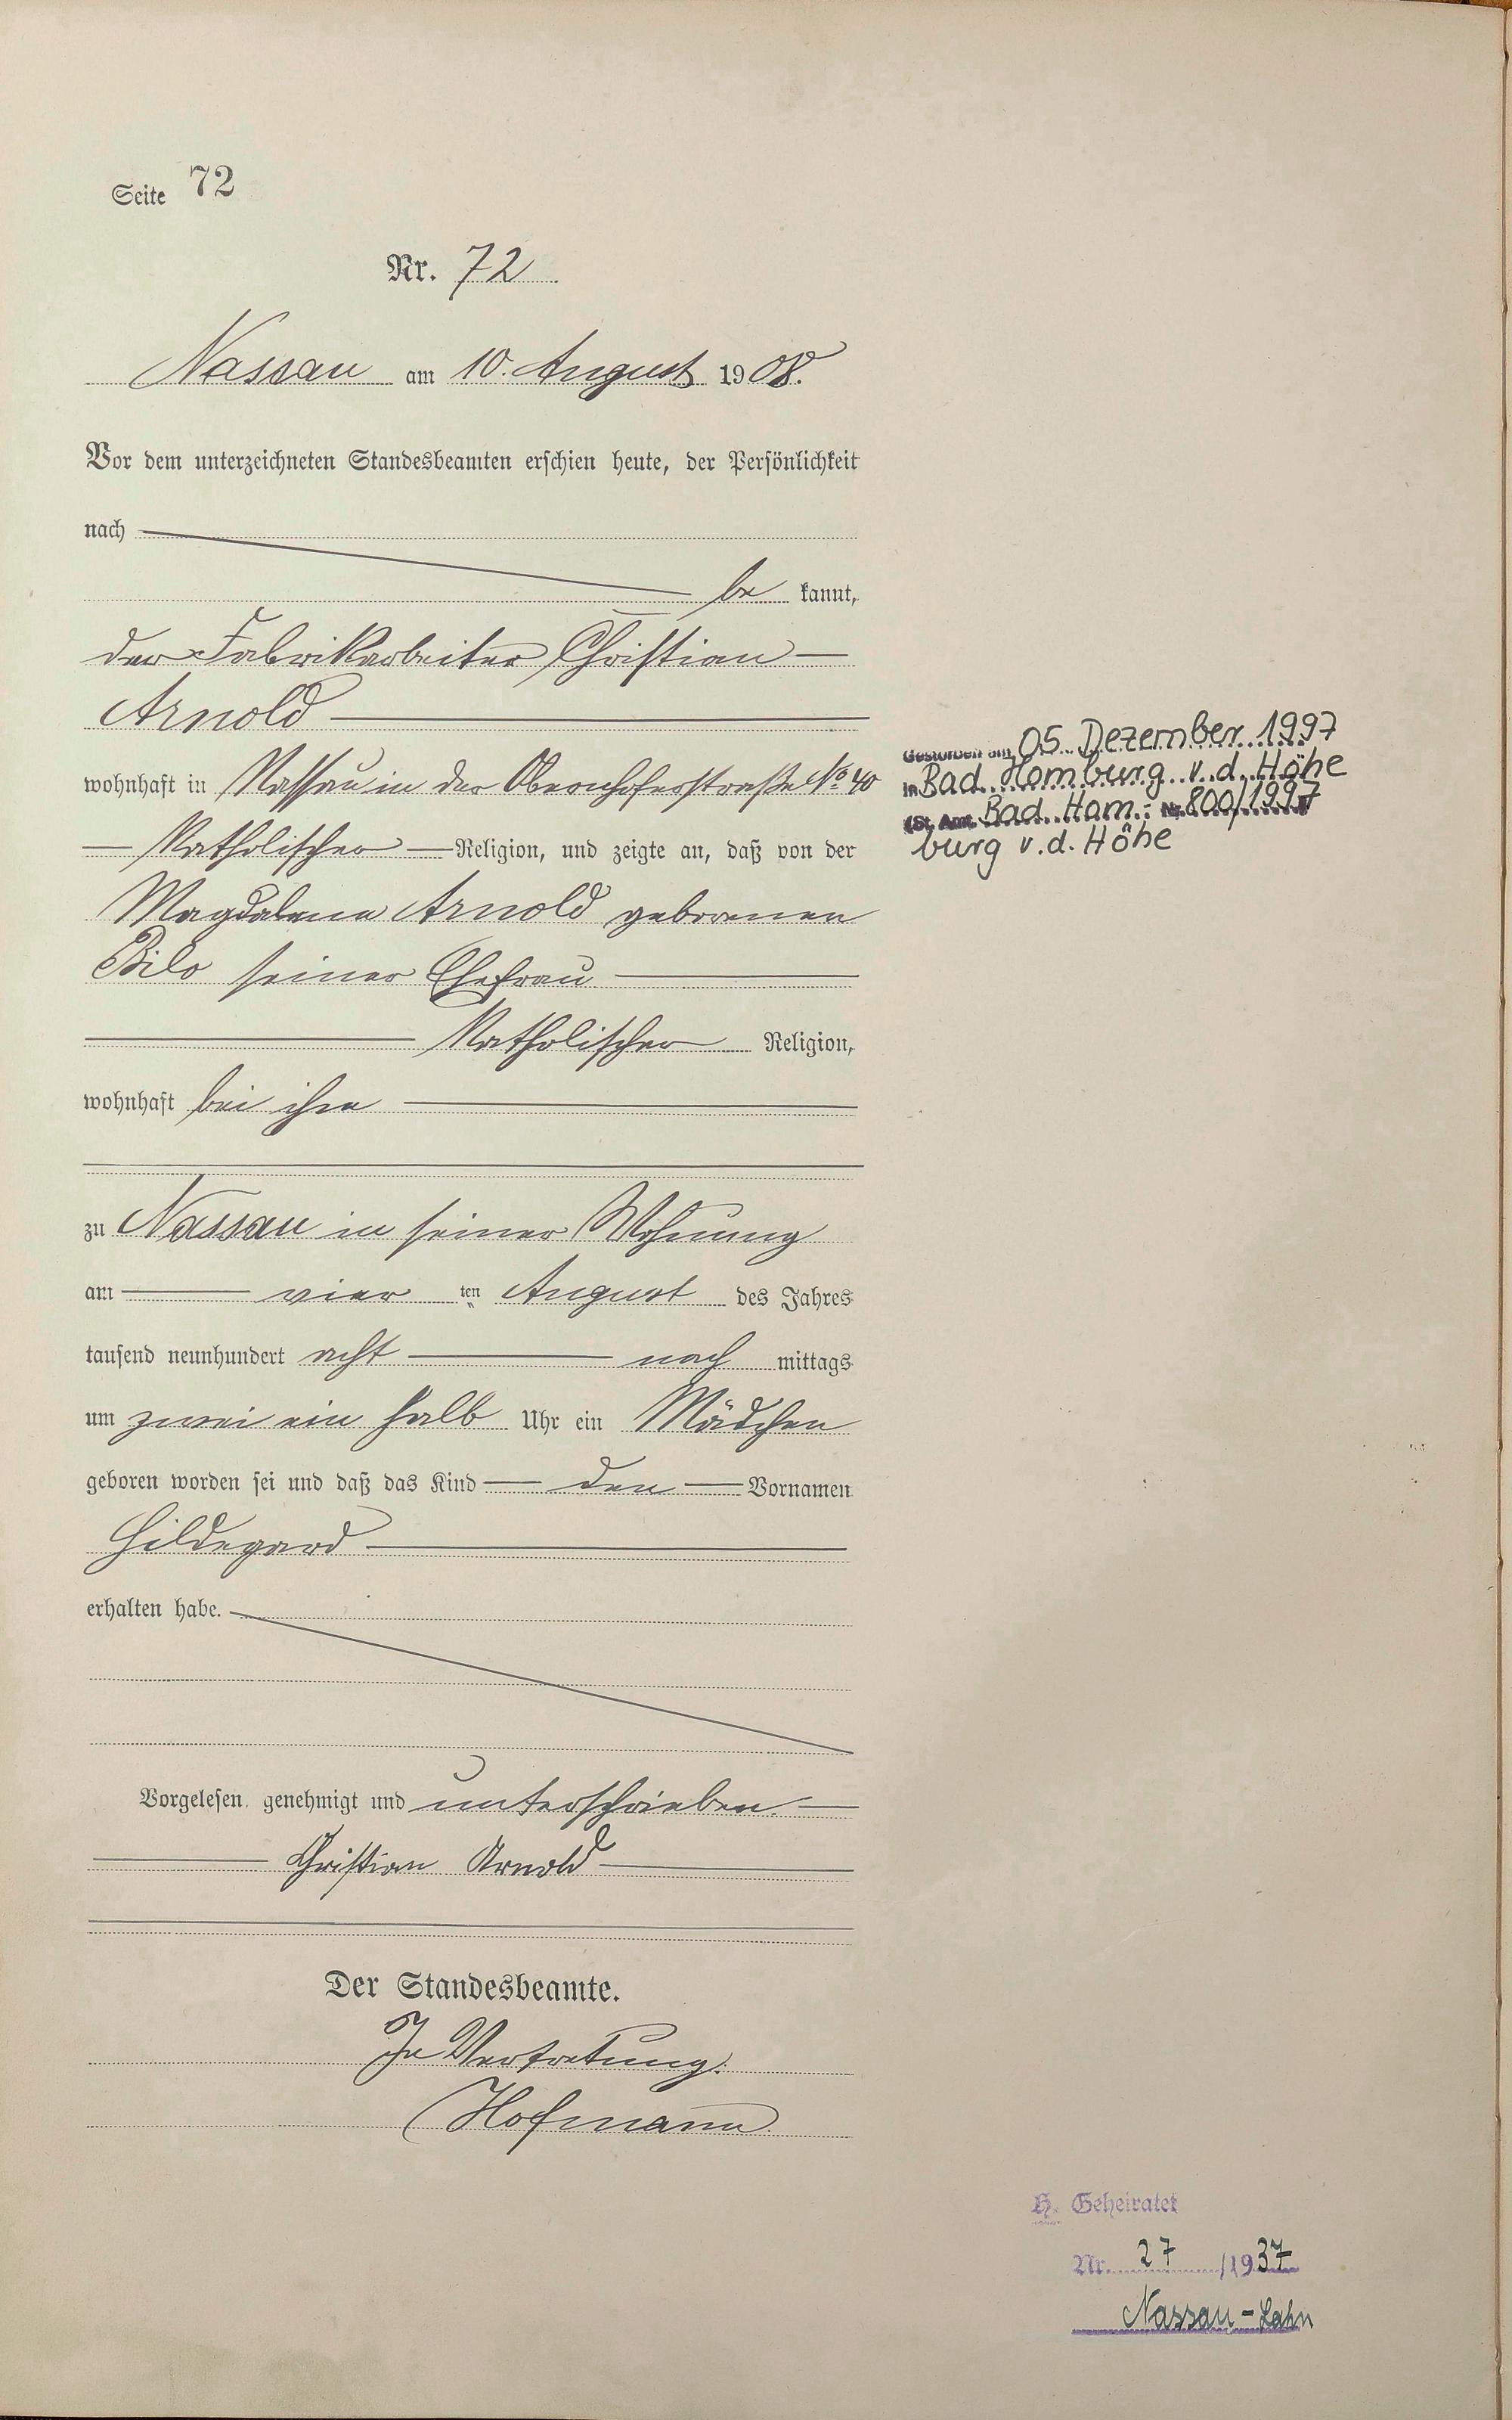 Seite 72
Nr. 72
Nassau am 10. August 1908.
Vor dem unterzeichneten Standesbeamten erschien heute, der Persönlichkeit
nach
be kannt,
der Fabrikarbeiter Christian
Arnold
wohnhaft in Nassau in der Obernhoferstraße No 40
Katholischer Religion, und zeigte an, daß von der
Magdalena Arnold geborenen
Bilo seiner Ehefrau
Katholischer Religion,
wohnhaft bei ihm
zu Nassau in seiner Wohnung
am vier ten August des Jahres
tausend neunhundert acht nach mittags
um zwei ein halb Uhr ein Mädchen
geboren worden sei und daß das Kind den Vornamen
Hildegard
erhalten habe.
Vorgelesen, genehmigt und unterschrieben.
Christian Arnold
Der Standesbeamte.
In Vertretung.
Hofmann
Gestorben am 05. Dezember 1997
in Bad Homburg v. d. Höhe
(St. Amt Bad Hom- Nr. 800/1997)
burg v. d. Höhe
H. Geheiratet
Nr. 27 /1937
Nassau-Lahn